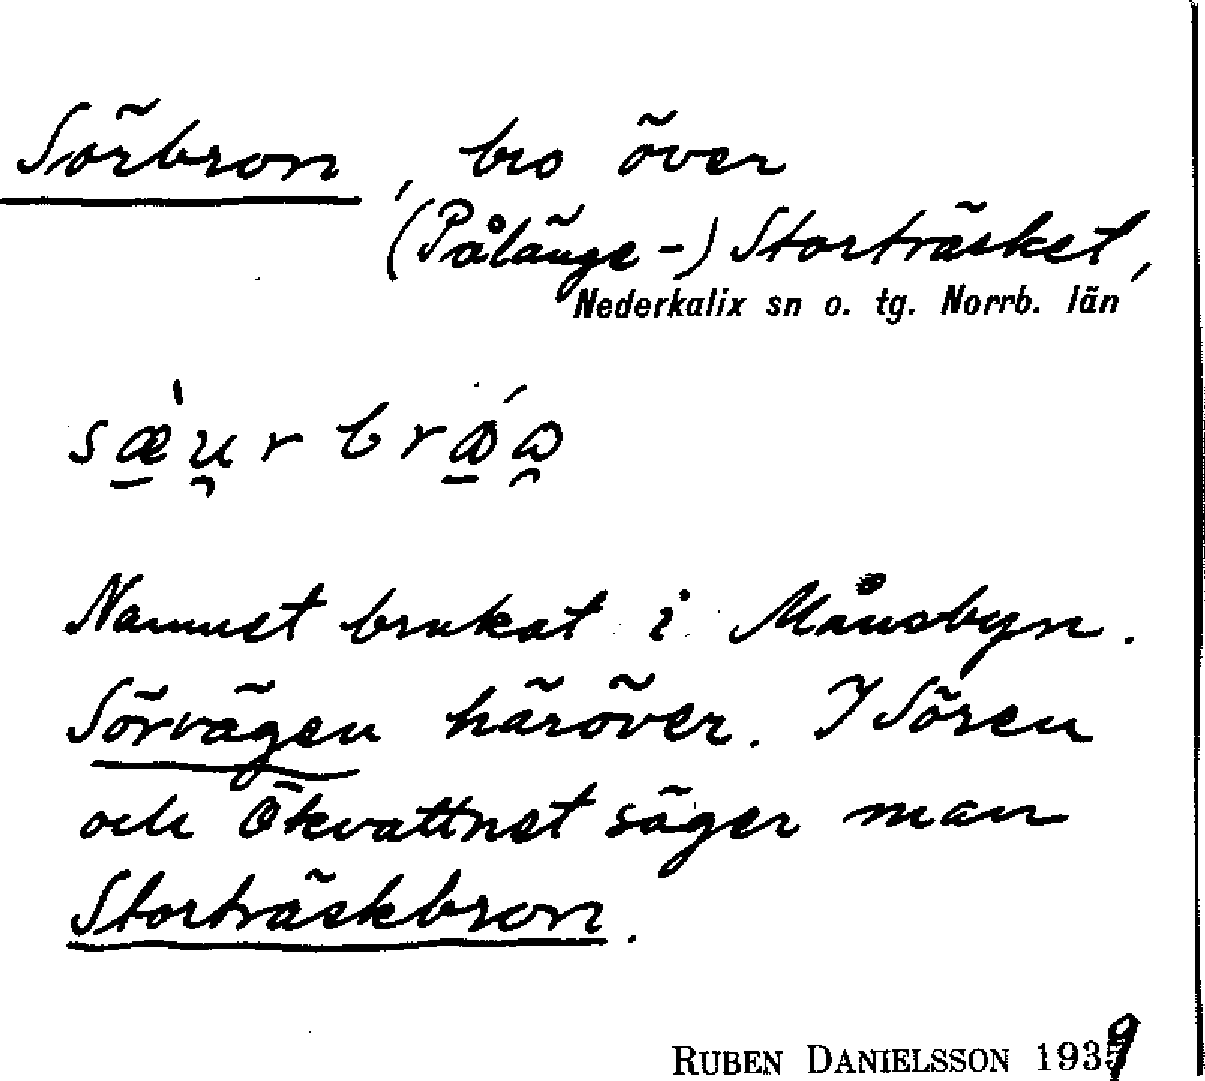 Sörbron, bro över
(Pålänge-) Storträsket,
Nederkalix sn o. tg. Norrb. län
Namnet brukat i Månsbyn.
Sörvägen häröver. I Sören
och Ökvattnet säger man
Storträskbron.
RUBEN DANIELSSON 1939